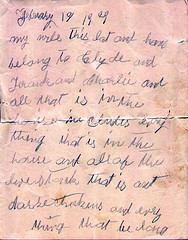 February 19 1929
my wife this lot and hous
belong to Clyde and
Frank and Charlie and
all that is in the
house in cludes every
thing that is in the
house and all of the
live stock that is out
darse chickens and evry
thing that be long